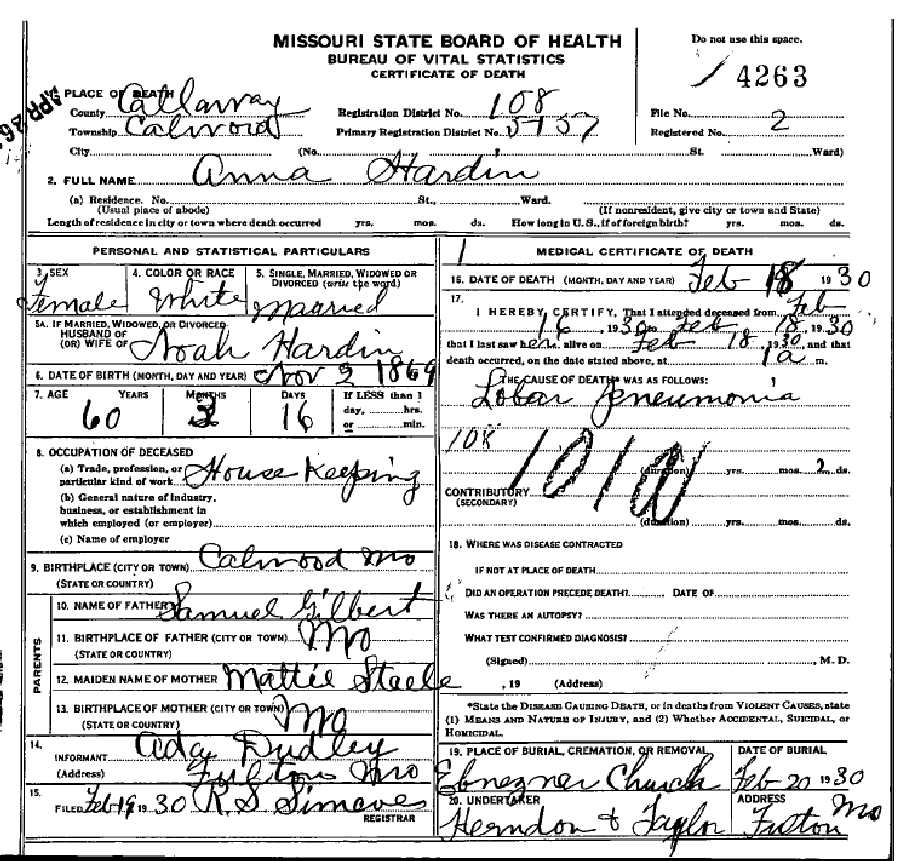 MISSOURI STATE BOARD OF HEALTH
BUREAU OF VITAL STATISTICS
CERTIFICATE OF DEATH
Do not use this space.
4263
APR 26
PLACE OF DEATH
County Callaway
Registration District No. 108
File No.
Township Calwood
Primary Registration District No. 5157
Registered No. 2
City (No. St. Ward)
2. FULL NAME Anna Hardin
(a) Residence. No. St., Ward.
(Usual place of abode) (If nonresident, give city or town and State)
Length of residence in city or town where death occurred yrs. mos. ds. How long in U.S., if of foreign birth? yrs. mos. ds.
PERSONAL AND STATISTICAL PARTICULARS
3. SEX Female
4. COLOR OR RACE White
5. SINGLE, MARRIED, WIDOWED OR DIVORCED (write the word) Married
5A. IF MARRIED, WIDOWED, OR DIVORCED
HUSBAND OF
(OR) WIFE OF Noah Hardin
6. DATE OF BIRTH (MONTH, DAY AND YEAR) Nov 2 1869
7. AGE YEARS MONTHS DAYS If LESS than 1
60 3 16 day, hrs.
or min.
8. OCCUPATION OF DECEASED
(a) Trade, profession, or
particular kind of work House Keeping
(b) General nature of industry,
business, or establishment in
which employed (or employer)
(c) Name of employer
9. BIRTHPLACE (CITY OR TOWN) Calwood Mo
(STATE OR COUNTRY)
PARENTS
10. NAME OF FATHER Samuel Gilbert
11. BIRTHPLACE OF FATHER (CITY OR TOWN) Mo
(STATE OR COUNTRY)
12. MAIDEN NAME OF MOTHER Mattie Steele
13. BIRTHPLACE OF MOTHER (CITY OR TOWN) Mo
(STATE OR COUNTRY)
14.
INFORMANT Ada Dudley
(Address) Fulton Mo
15.
FILED Feb 19 1930 R. S. Simcoes
REGISTRAR
1 MEDICAL CERTIFICATE OF DEATH
16. DATE OF DEATH (MONTH, DAY AND YEAR) Feb 18 1930
17.
I HEREBY CERTIFY, That I attended deceased from Feb
16, 1930 to Feb 18, 1930
that I last saw her alive on Feb 18, 1930, and that
death occurred, on the date stated above, at 1 a m.
THE CAUSE OF DEATH WAS AS FOLLOWS: 1
Lobar Pneumonia
108
(duration) yrs. mos. 2 ds.
CONTRIBUTORY
(SECONDARY)
(duration) yrs. mos. ds.
18. WHERE WAS DISEASE CONTRACTED
IF NOT AT PLACE OF DEATH
DID AN OPERATION PRECEDE DEATH? DATE OF
WAS THERE AN AUTOPSY?
WHAT TEST CONFIRMED DIAGNOSIS?
(Signed) , M. D.
, 19 (Address)
*State the DISEASE CAUSING DEATH, or in deaths from VIOLENT CAUSES, state
(1) MEANS AND NATURE OF INJURY, and (2) Whether ACCIDENTAL, SUICIDAL, or
HOMICIDAL.
19. PLACE OF BURIAL, CREMATION, OR REMOVAL DATE OF BURIAL
Ebnezner Church Feb-20 1930
20. UNDERTAKER ADDRESS
Herndon & Taylor Fulton Mo